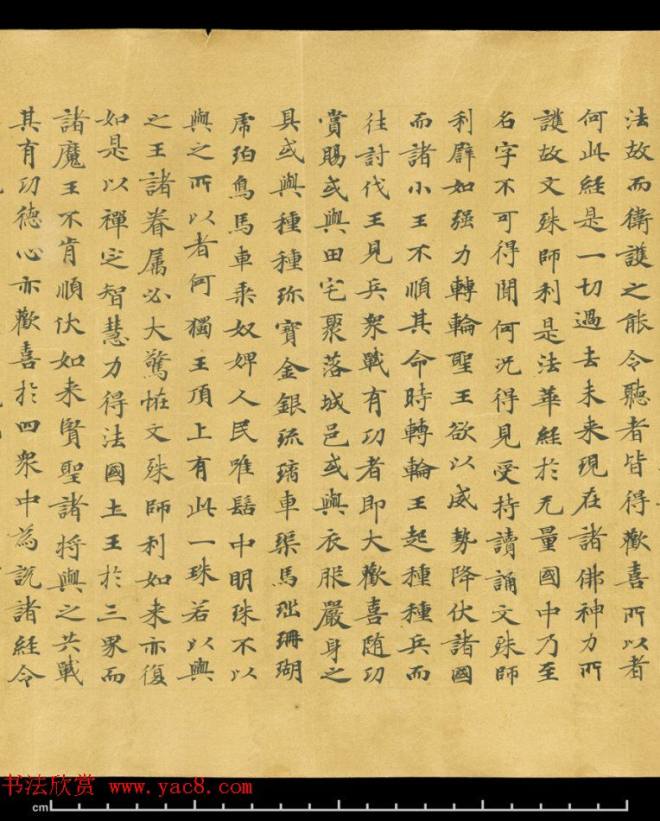 法故而衛護之能令聽者皆得歡喜所以者
何此経是一切過去未来現在諸佛神力所
護故文殊師利是法華経於无量國中乃至
名字不可得聞何況得見受持讀誦文殊師
利譬如强力轉輪聖王欲以威勢降伏諸國
而諸小王不順其命時轉輪王起種種兵而
往討伐王見兵衆戰有功者即大歡喜随功
賞賜或與田宅聚落城邑或與衣服嚴身之
具或與種種珎寶金銀琉璃車渠馬瑙珊瑚
虎珀鳥馬車乘奴婢人民唯髻中明珠不以
與之所以者何獨王頂上有此一珠若以與
之王諸眷属必大驚恠文殊師利如来亦復
如是以禪定智慧力得法國土王於三界而
諸魔王不肯順伏如来賢聖諸將與之共戰
其有功德心亦歡喜於四衆中為說諸経令
书法欣赏 www.yac8.com
cm